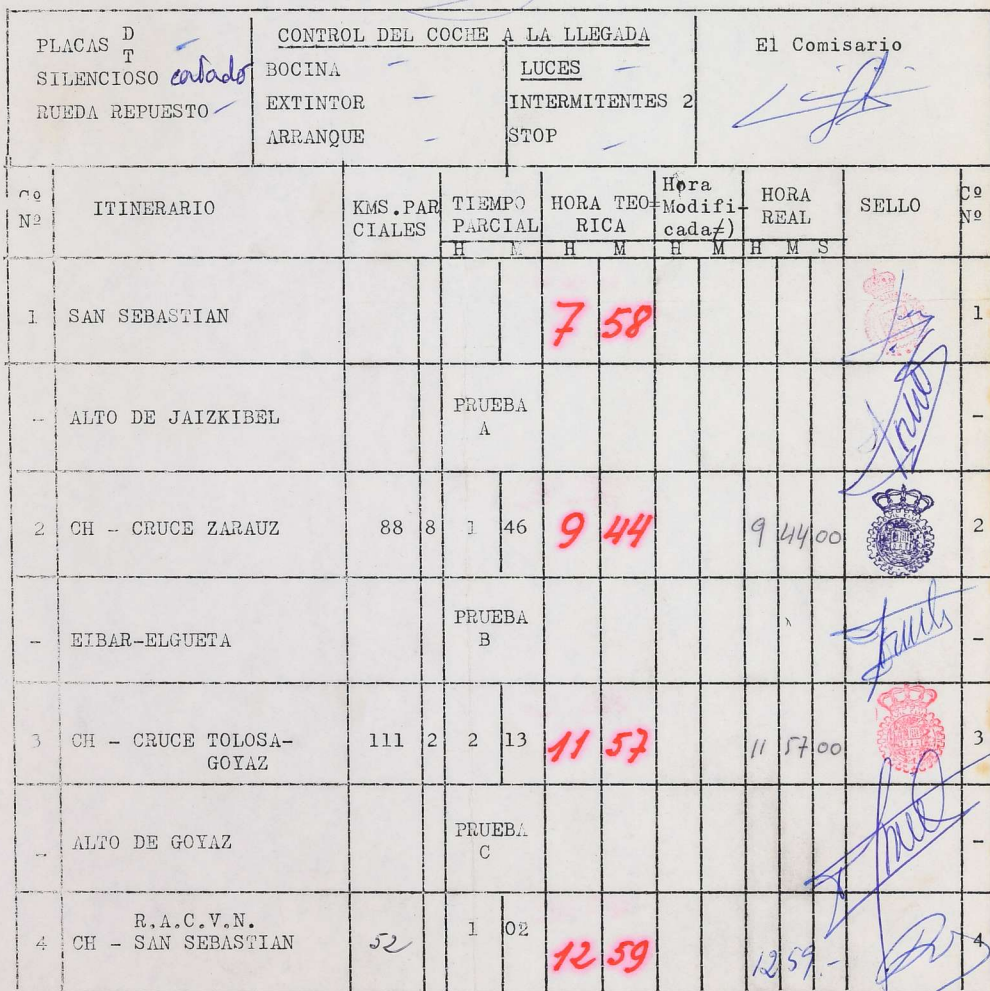 PLACAS D
T
SILENCIOSO cortado
RUEDA REPUESTO -
CONTROL DEL COCHE A LA LLEGADA
BOCINA -
EXTINTOR -
ARRANQUE -
LUCES -
INTERMITENTES 2
STOP -
El Comisario
Cº Nº ITINERARIO KMS.PARCIALES TIEMPO PARCIAL HORA TEORICA Hora Modificada≠) HORA REAL SELLO Cº Nº
H M H M H M H M S
1 SAN SEBASTIAN 7 58 1
- ALTO DE JAIZKIBEL PRUEBA A -
2 CH - CRUCE ZARAUZ 88 8 1 46 9 44 9 44 00 2
- EIBAR-ELGUETA PRUEBA B -
3 CH - CRUCE TOLOSA- 111 2 2 13 11 57 11 57 00 3
GOYAZ
- ALTO DE GOYAZ PRUEBA C -
R.A.C.V.N.
4 CH - SAN SEBASTIAN 52 1 02 12 59 12 59 .- 4